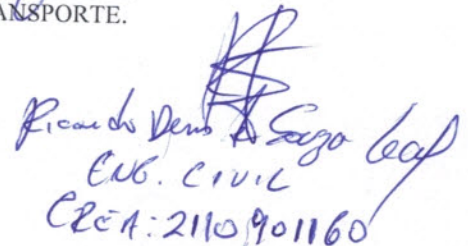 ANSPORTE.
Ricardo Denis de Souza Leal
ENG. CIVIL
CREA: 2110901160